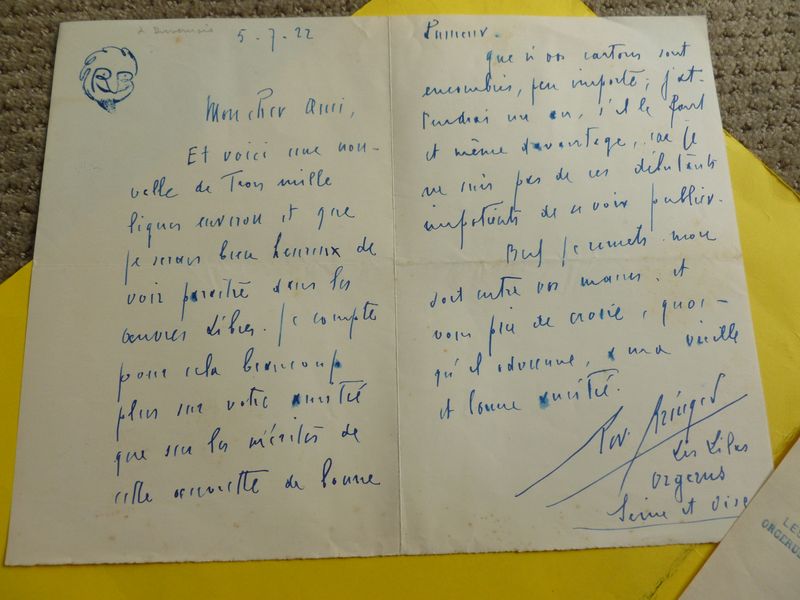 à Duvernois
5-7-22
RB
Mon cher ami,
Et voici une nou-
velle de Trois mille
lignes environ et que
je serais bien heureux de
voir paraître dans les
Œuvres Libres. Je compte
pour cela beaucoup
plus sur votre amitié
que sur les mérites de
cette œuvrette de bonne
humeur.
que si vos cartons sont
encombrés, peu importe; j'at-
tendrai un an, s'il le faut
et même davantage, car je
ne suis pas de ces débutants
impatients de se voir publier.
Bref je remets mon
sort entre vos mains et
vous prie de croire, quoi-
qu'il advienne, à ma vieille
et bonne amitié.
Les Lilas
Orgerus
Seine et Oise
LES
ORGERUS